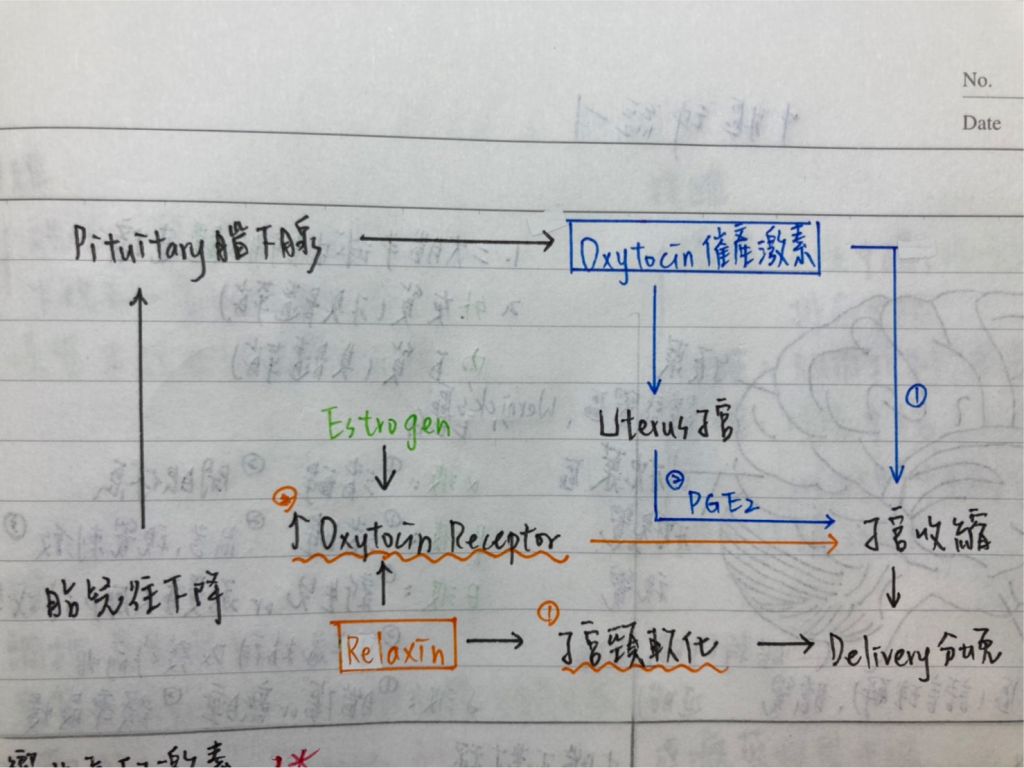 No.
Date
Pituitary 腦下腺 → Oxytocin 催產激素
①
Estrogen
Uterus 子宮
② PGE2
② ↑ Oxytocin Receptor → 子宮收縮
胎兒往下降
① 
Relaxin → 子宮頸軟化 → Delivery 分娩
激素